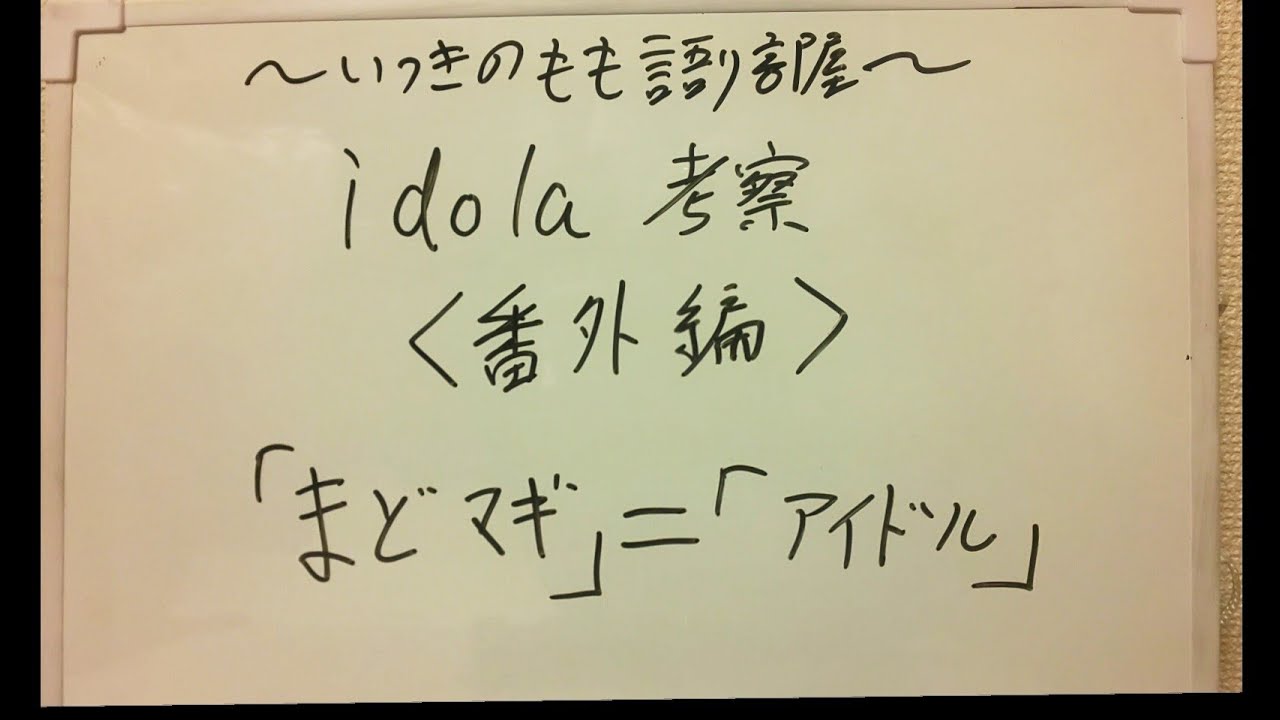 ～いつきのもも語り部屋～
idola 考察
〈番外編〉
「まどマギ」=「アイドル」